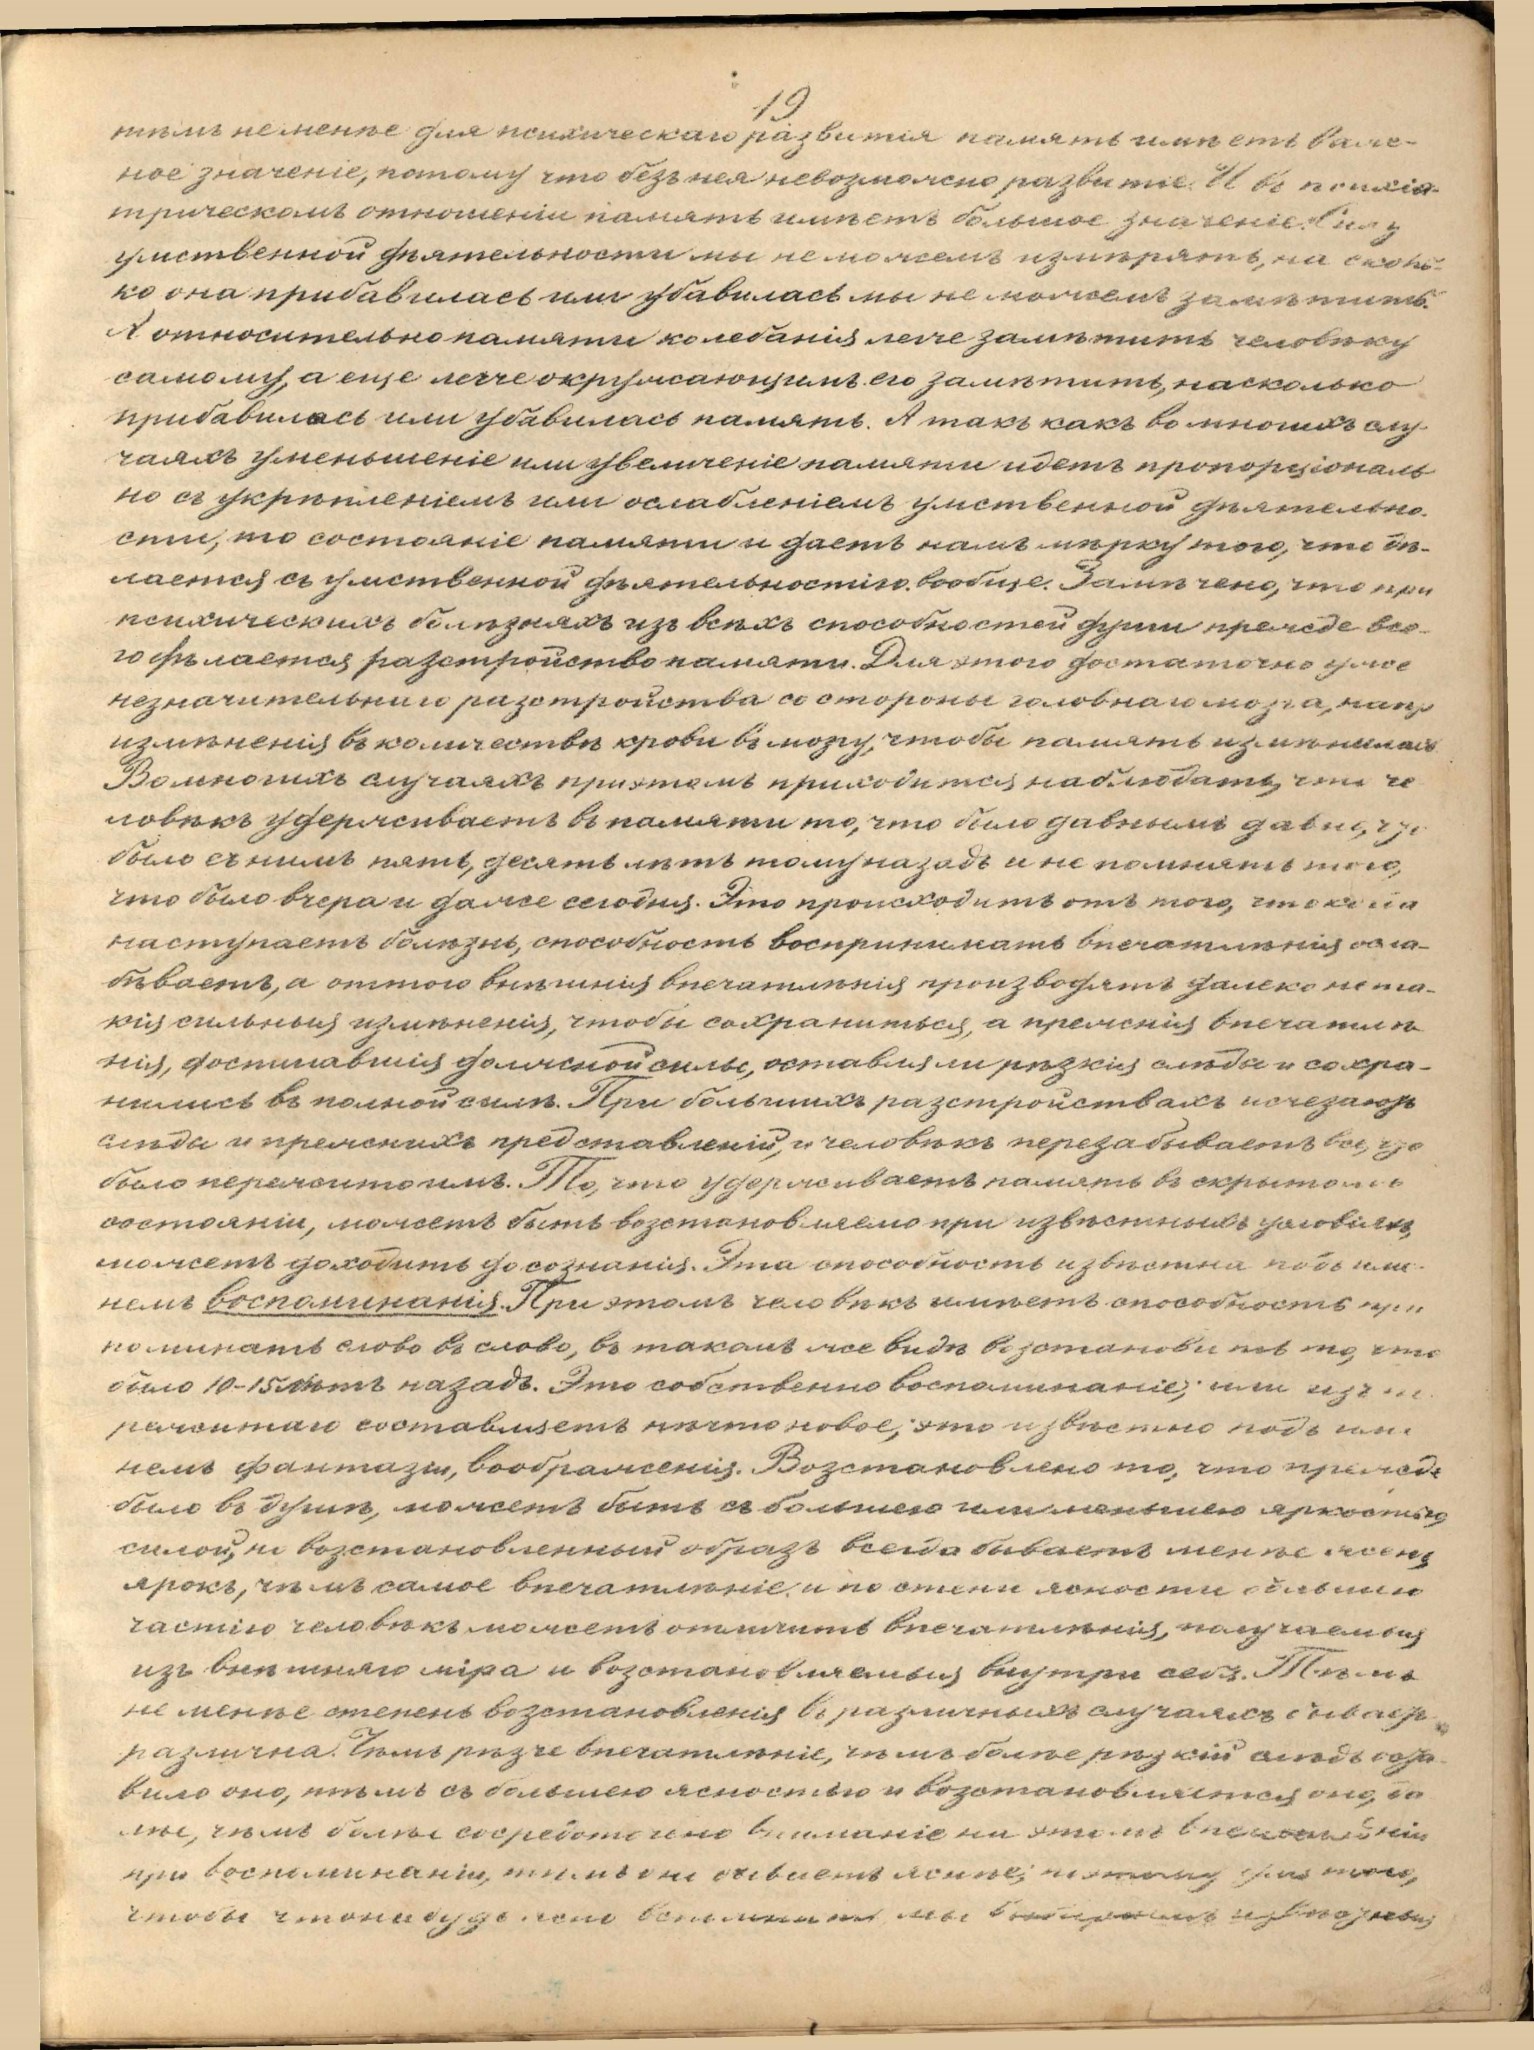 19
тѣмъ не менѣе для психическаго развитія память имѣетъ важ-
ное значеніе, потому что безъ нея невозможно развитіе. И въ психіа-
трическомъ отношеніи память имѣетъ большое значеніе. Силу
умственной дѣятельности мы не можемъ измѣрять, на сколь-
ко она прибавилась или убавилась мы не можемъ замѣтить.
А относительно памяти колебанія легче замѣтить человѣку
самому, а еще легче окружающимъ его замѣтить, насколько
прибавилась или убавилась память. А такъ какъ во многихъ слу-
чаяхъ уменьшеніе или увеличеніе памяти идетъ пропорціональ
но съ укрѣпленіемъ или ослабленіемъ умственной дѣятельно-
сти, то состояніе памяти и даетъ намъ мѣрку того, что дѣ-
лается съ умственной дѣятельностію вообще. Замѣчено, что при
психическихъ болѣзняхъ изъ всѣхъ способностей души прежде все-
го дѣлается разстройство памяти. Для этого достаточно уже
незначительнаго разстройства со стороны головнаго мозга, напр
измѣненія въ количествѣ крови въ мозгу, чтобы память измѣнилась
Во многихъ случаяхъ при этомъ приходится наблюдать, что че
ловѣкъ удерживаетъ въ памяти то, что было давнымъ давно, что
было съ нимъ пять, десять лѣтъ тому назадъ и не помнятъ того,
что было вчера и даже сегодня. Это происходитъ отъ того, что когда
наступаетъ болѣзнь, способность воспринимать впечатлѣнія осла-
бѣваетъ, а оттого внѣшнія впечатлѣнія производятъ далеко не та-
кія сильныя измѣненія, чтобы сохраниться, а прежнія впечатлѣ
нія, достигавшія должной силы, оставляли рѣзкія слѣды и сохра-
нились въ полной силѣ. При большихъ разстройствахъ исчезаютъ
слѣды и прежнихъ представленій, и человѣкъ перезабываетъ все, что
было пережито имъ. То, что удерживаетъ память въ скрытомъ
состояніи, можетъ быть возстановляемо при извѣстныхъ условіяхъ,
можетъ доходить до сознанія. Эта способность извѣстна подъ име-
немъ воспоминанія. При этомъ человѣкъ имѣетъ способность при
поминать слово въ слово, въ такомъ же видѣ возстановить то, что
было 10-15 лѣтъ назадъ. Это собственно воспоминаніе; или изъ пе
режитаго составляетъ нѣчто новое, это извѣстно подъ име
немъ фантазіи, воображенія. Возстановлено то, что прежде
было въ душѣ, можетъ быть съ большею или меньшею яркостью
силой, но возстановленный образъ всегда бываетъ менѣе ясенъ
ярокъ, чѣмъ самое впечатлѣніе, и по степени ясности большею
частію человѣкъ можетъ отличить впечатлѣнія, получаемыя
изъ внѣшняго міра и возстановляемыя внутри себя. Тѣмъ
не менѣе степень возстановленія въ различныхъ случаяхъ бываетъ
различна. Чѣмъ рѣзче впечатлѣніе, чѣмъ болѣе рѣзкій слѣдъ оста
вило оно, тѣмъ съ большею ясностью и возстановляется оно, бо
лѣе, чѣмъ болѣе сосредоточено вниманіе на этомъ впечатлѣніи
при воспоминаніи, тѣмъ оно бываетъ яснѣе; потому для того,
чтобы что нибудь ясно вспоминать мы